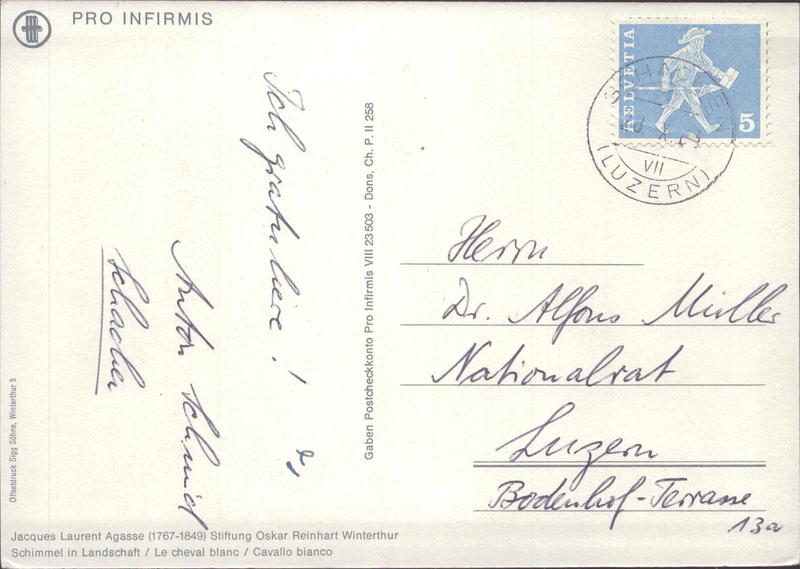 PRO INFIRMIS
HELVETIA
5
VII
(LUZERN)
Ich gratuliere!
Anton Schmid
Schachen
Gaben Postcheckkonto Pro Infirmis VIII 23503 - Dons, Ch. P. II 258
Herrn
Dr. Alfons Müller
Nationalrat
Luzern
Bodenhof-Terrasse
13a
Offsetdruck Sigg Söhne, Winterthur 5
Jacques Laurent Agasse (1767-1849) Stiftung Oskar Reinhart Winterthur
Schimmel in Landschaft / Le cheval blanc / Cavallo bianco